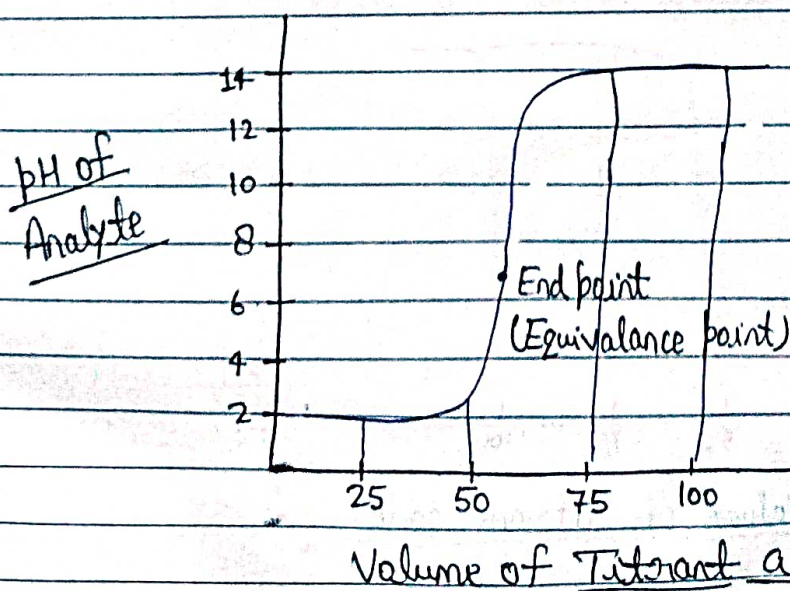 14
12
pH of
Analyte
10
8
6
4
2
End point
(Equivalance point)
25 50 75 100
Volume of Titrant a